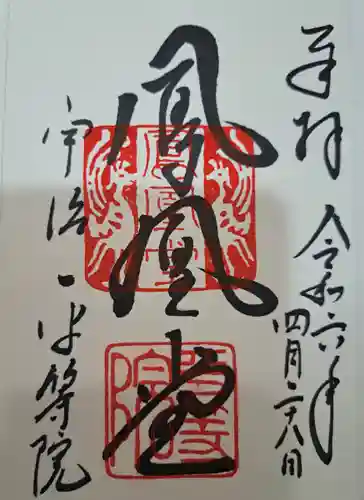 奉拝
令和六年
四月二十八日
鳳凰堂
宇治 平等院